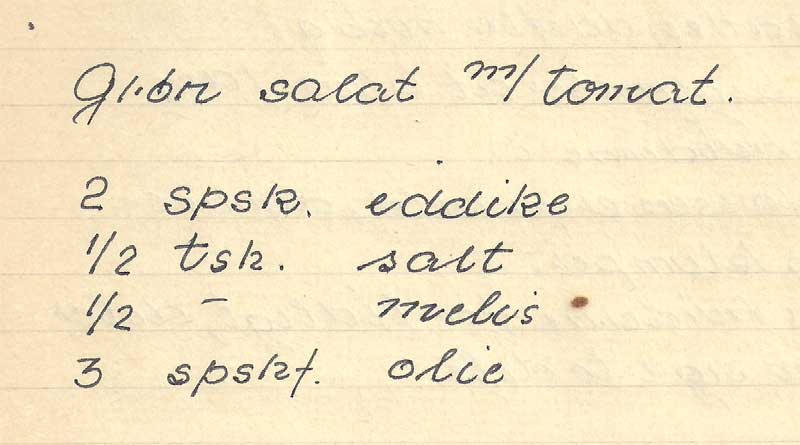 Grøn salat m/tomat.
2 spsk. eddike
1/2 tsk. salt
1/2 - melis
3 spskf. olie